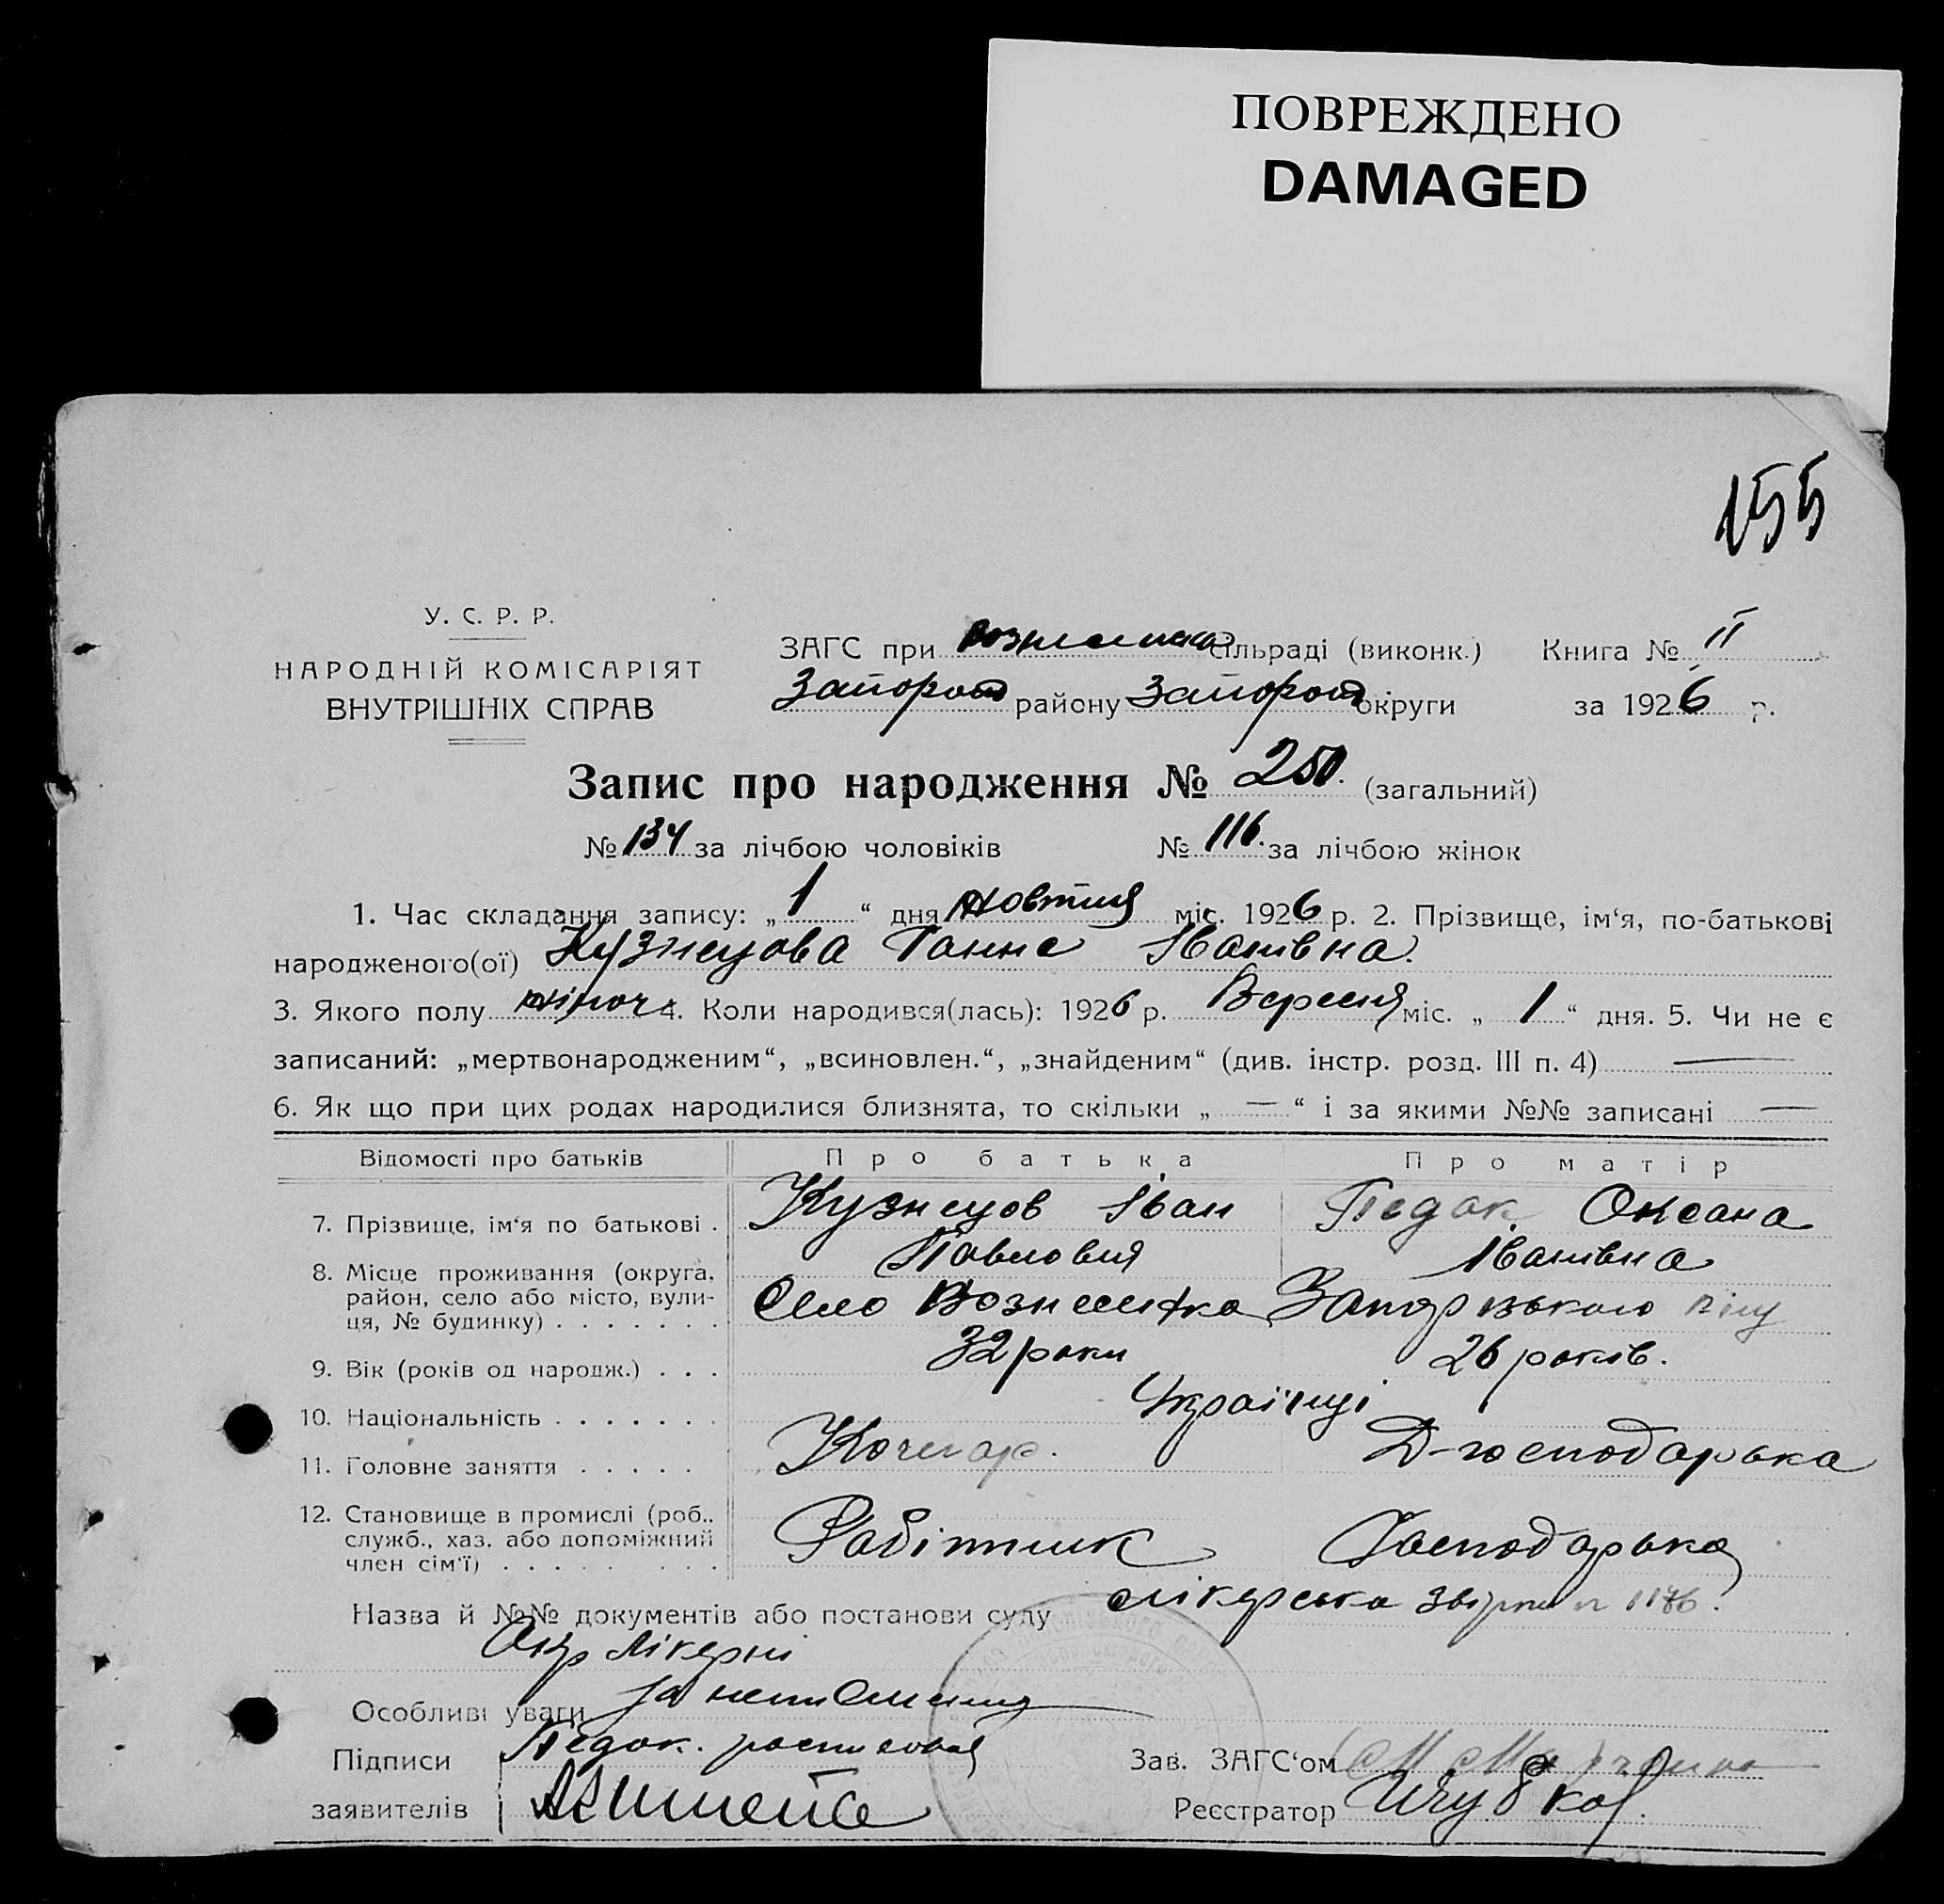 ПОВРЕЖДЕНО
DAMAGED
155
У. С. Р. Р.
НАРОДНІЙ КОМІСАРІЯТ
ВНУТРІШНІХ СПРАВ
ЗАГС при сільраді (виконк.) Книга № II
Запороз району Запороз округи за 1926 р.
Запис про народження № 250. (загальний)
№ 134 за лічбою чоловіків № 116. за лічбою жінок
1. Час складання запису: „1“ дня Жовтня міс. 1926 р. 2. Прізвище, ім‘я, по-батькові
народженого(ої) Кузнецова Ганна Іванівна.
3. Якого полу жіноч 4. Коли народився(лась): 1926 р. Вересня міс. „1“ дня. 5. Чи не є
записаний: „мертвонародженим“, „всиновлен.“, „знайденим“ (див. інстр. розд. III п. 4) —
6. Як що при цих родах народилися близнята, то скільки „—“ і за якими №№ записані —
Відомості про батьків Про батька Про матір
7. Прізвище, ім‘я по батькові . Кузнецов Іван Педак Оксана
Павлович Іванівна
8. Місце проживання (округа,
район, село або місто, вули-
ця, № будинку) . . . . . . . Село Вознесенка Запорізького
9. Вік (років од народж.) . . . 32 роки 26 років.
10. Національність . . . . . . . Українці
11. Головне заняття . . . . . Кочегар. Д-господарька
12. Становище в промислі (роб.,
служб., хаз. або допоміжний
член сім‘ї) . . . . . . . . Робітник Господарька
Назва й №№ документів або постанови суду лікарська 1176.
Окр лікарні
Особливі уваги за неписьменну
Підписи Педак. росписався
заявителів
Зав. ЗАГС‘ом
Реєстратор